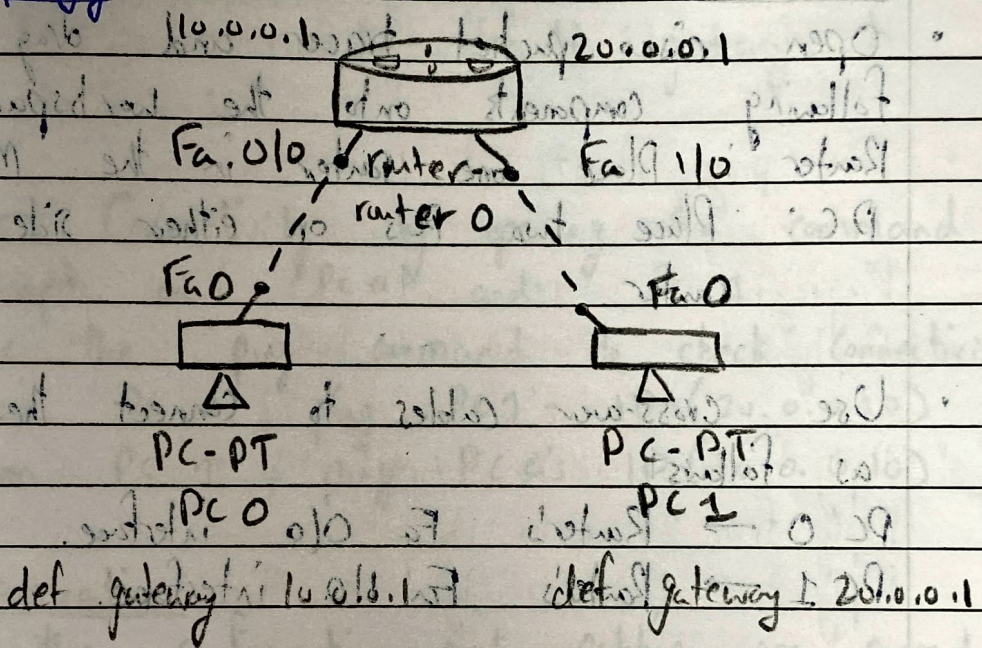 10.0.0.1 20.0.0.1
Fa 0/0 router Fa 1/0
router 0
Fa0 Fa0
PC-PT PC-PT
PC 0 PC 1
def gateway 10.0.0.1 def gateway 1 20.0.0.1